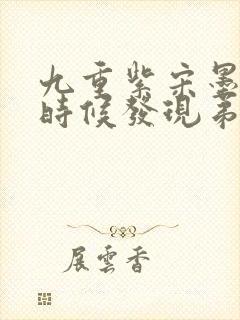 九重紫宋墨
時候發現弟
展雲香